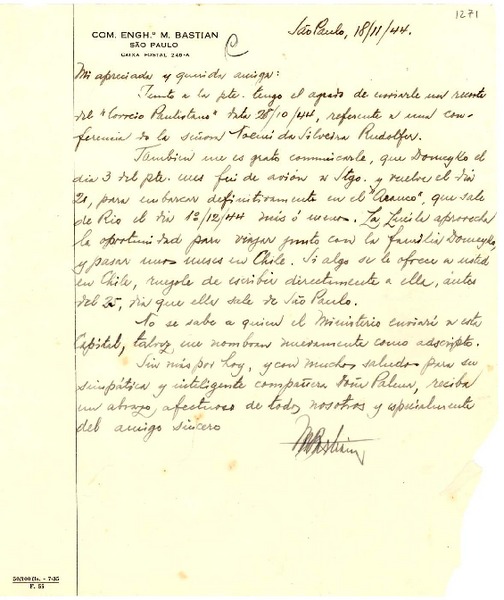 1271
COM. ENGH.º M. BASTIAN
SÃO PAULO
CAIXA POSTAL 248-A
C
São Paulo, 18/11/44.
Mi apreciada y querida amiga:
Junto a la pte. tengo el agrado de enviarle un recorte
del "Correio Paulistano" data 28/10/44, referente a una con-
ferencia de la señora Noemi da Silveira Rudolfer.
Tambien me es grato comunicarle, que Domeyko el
dia 3 del pte. mes fui de avión a Stgo. y vuelve el dia
20, para embarcar definitivamente en el que sale
de Rio el dia 12/12/44 más ó menos. La Luisla aprovecha
la oportunidad para viajar junto con la familia Domeyko,
y pasar unos meses en Chile. Si algo se le ofrece a usted
en Chile, ruegole de escribir directamente a ella, ántes
del 25, dia que ella sale de São Paulo.
No se sabe a quien el Ministerio enviará a esta
Capital, talvez me nombran nuevamente como adscripto.
Sin más por hoy, y con muchos saludos para su
simpática y inteligente compañera Doña Palma, reciba
un abrazo, afectuoso de todos nosotros y especialmente
del amigo sincero
MBastian
50/100 Bls. - 7-35
F. 51